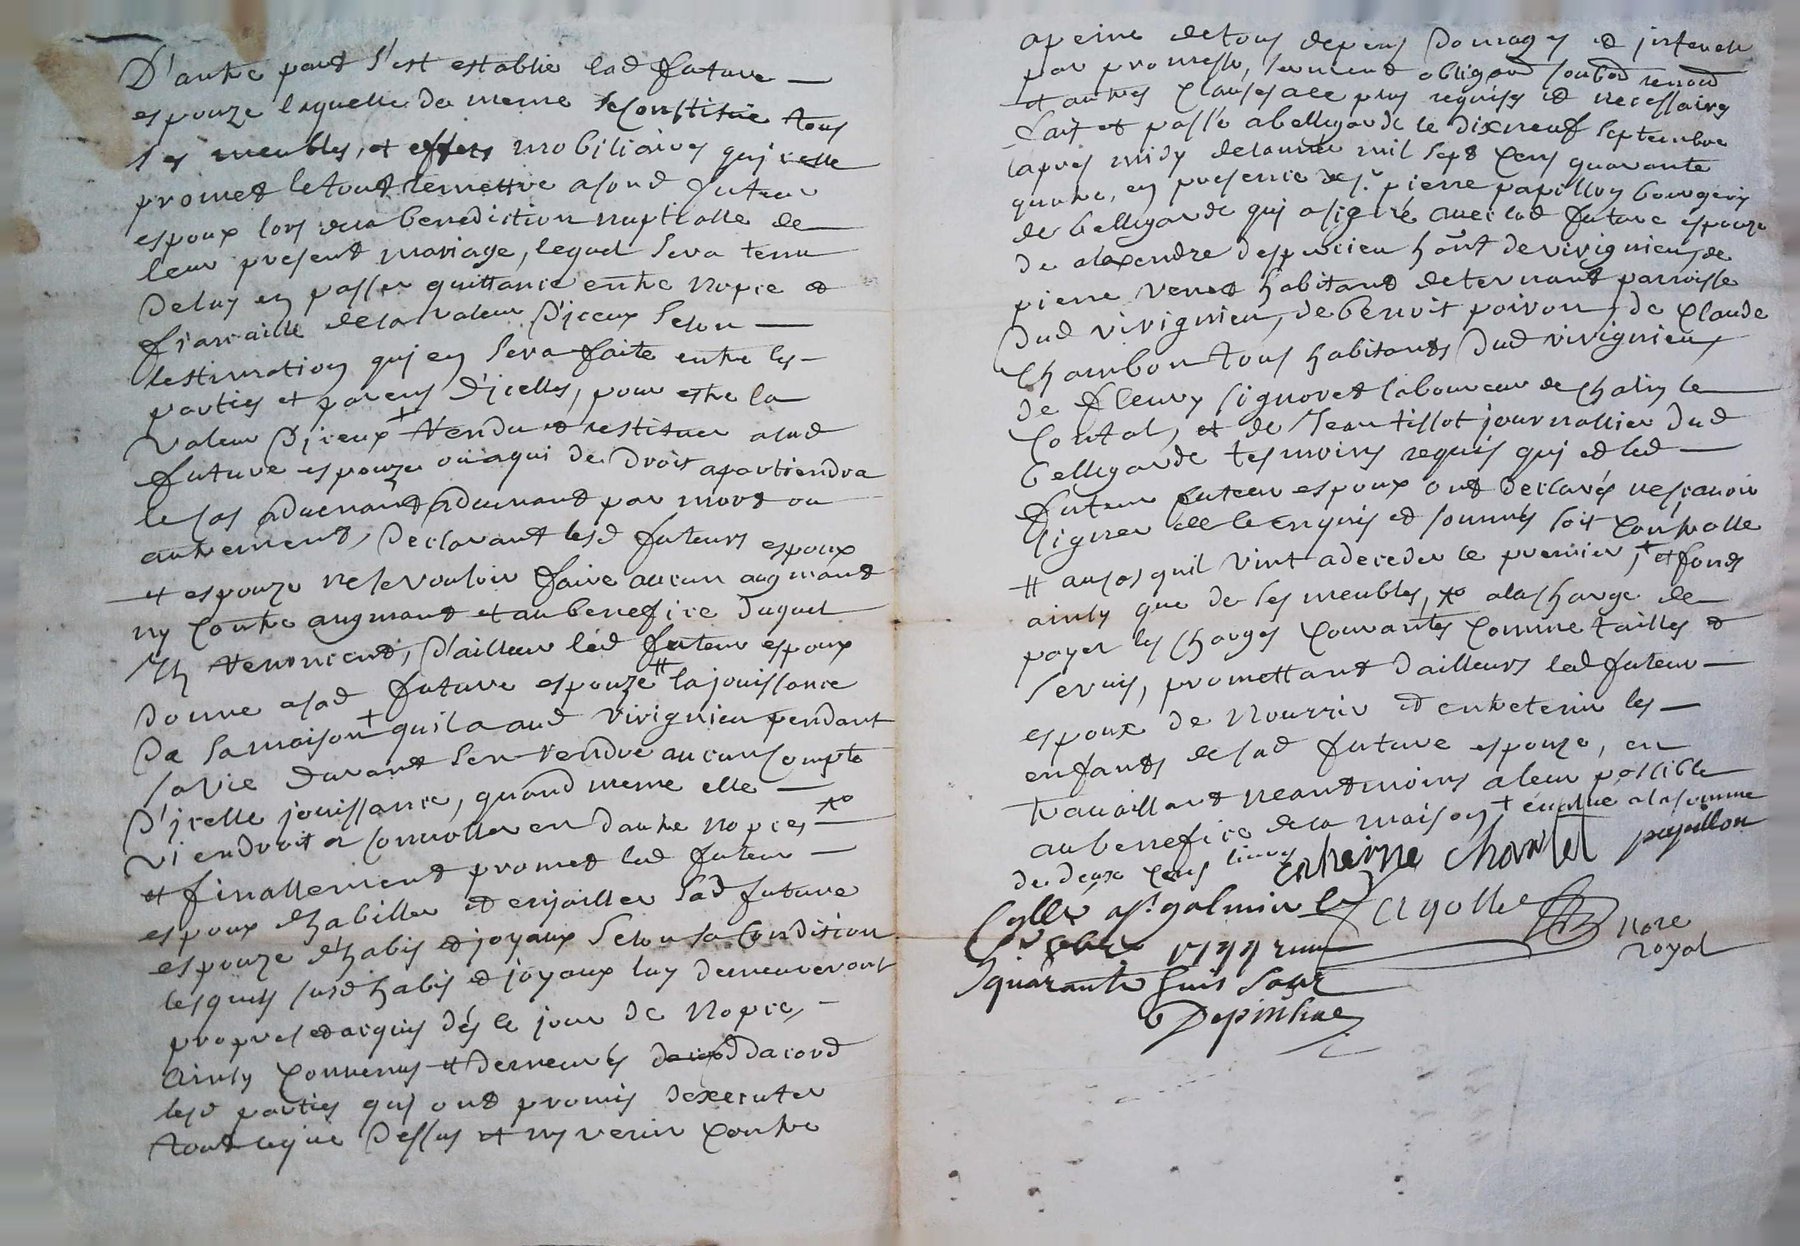 D'autre part s'est establie lad future
espouze laquelle de meme se Constitue tous
ses meubles, et effets mobiliaires qu'icelle
promet le tout remettre a sond futeur
espoux lors de la benediction nuptialle de
leur present mariage, lequel sera tenu
De luy en passer quittance entre nopce et
fiancaille de la valeur D'iceux selon
lestimation qui en sera faite entre les
parties et parens D'icelles, pour estre la
valeur D'iceux + rendu et restituer a lad
future espouze ou a qui de Droit apartiendra
le cas aduenant aduenant par mort ou
autrement, Declarant lesd futeurs espoux
et espouze ne se vouloir faire aucun augmant
ny contre augmant et au benefice duquel
Ils renoncent, D'ailleur led futeur espoux
Donne a sad future espouze # la jouissance
De sa maison + qu'il a aud Virignieu pendant
sa vie durant sen rendre aucun compte
D'icelle jouissance, quand meme elle
viendroit a convoller en dautre nopces
et finallement promet led futeur
espoux d'habiller et enjailler sad future
espouze d'habis et joyaux selon sa Condition
lesquels susd habis et joyaux luy demeureront
propres et acquis dés le jour de nopces,
Ainsy convenus et demeurés dacord
lesd parties qui ont promis dexecuter
tout ce que Dessus et ny venir contre
a peine de tous depens Domages et interets
par promesse, serment obligaon soubon renoon
et autres clauses a ce plus requises et necessaires
fait et passé a bellegarde le dixneuf septembre
lapres midy de lannée mil sept cens quarante
quatre, en presence de sr pierre papillon bourgeois
de bellegarde qui a signé avec lad future espouze
de alexendre despercieu hant de virignieu, de
pierre venet habitant de ternant parroisse
Dud virignieu, de benoit poivon, de Claude
Chambon tous habitants Dud virignieu
de fleury signoret laboureur de Chalin le
Contal, et de Jean tillot journallier Dud
bellegarde tesmoins requis qui et led
futeur futeur espoux ont declarés ne scavoir
signer de ce enquis et sommés soit controllé
# au cas qu'il vint a deceder le premier, + et fonds
ainsy que de ses meubles, a la charge de
payer les charges courantes comme tailles et
servis, promettant dailleurs led futeur
espoux de nourrir et entretenir les
enfants de sad future espouze, en
travaillant neantmoins a leur possible
au benefice de la maison + évalué a la somme
de deux cens livres
Catherine Chantel papillon
Collé a St galmier le
8bre 1744 reçu
quarante huit sols
Depinhac
Nore
royal